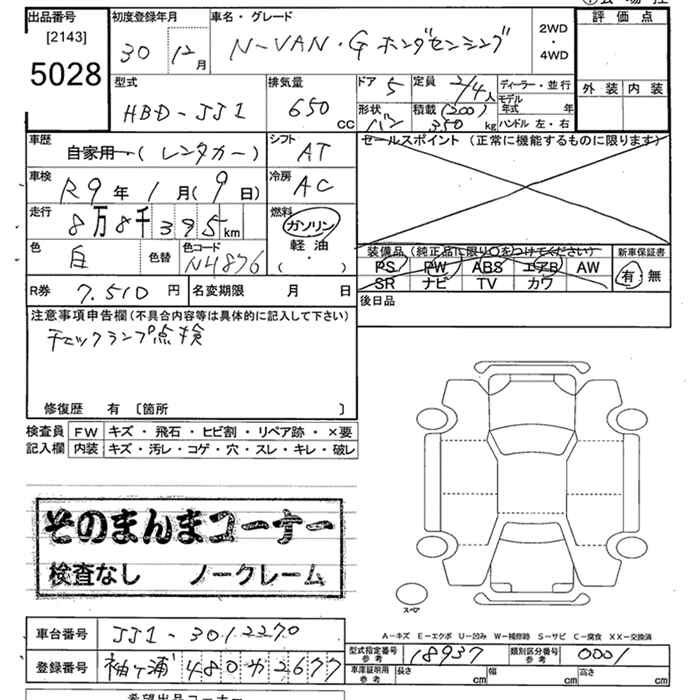 出品番号 初度登録年月 車名・グレード 評価点
[2143] 30 12月 N-VAN・G ホンダセンシング 2WD・4WD
5028
型式 排気量 ドア 5 定員 2/4人 ディーラー・並行 外装 内装
HBD-JJ1 650cc 形状 バン 積載 (200) 350kg モデル年式 年
ハンドル 左・右
車歴 シフト セールスポイント (正常に機能するものに限ります)
自家用 (レンタカー) AT
車検 R9年1月(9日) 冷房 AC
走行 8万8千395km 燃料 ガソリン
軽油
(・)
色 白 色替 色コード N4876
装備品 (純正品に限り○をつけてください) 新車保証書
PS PW ABS エアB AW 有・無
SR ナビ TV カワ
R券 7,510円 名変期限 月 日 後日品
注意事項申告欄 (不具合内容等は具体的に記入して下さい)
チェックランプ点検
修復歴 有 〔箇所 〕
検査員 FW キズ・飛石・ヒビ割・リペア跡・×要
記入欄 内装 キズ・汚レ・コゲ・穴・スレ・キレ・破レ
そのまんまコーナー
検査なし ノークレーム
スペア
A-キズ E-エクボ U-凹み W-補修跡 S-サビ C-腐食 XX-交換済
車台番号 JJ1-3012270
型式指定番号 参考 18937 類別区分番号 参考 0001
登録番号 袖ヶ浦 480 か 2677
車庫証明用 参考 長さ cm 幅 cm 高さ cm
希望出品コーナー